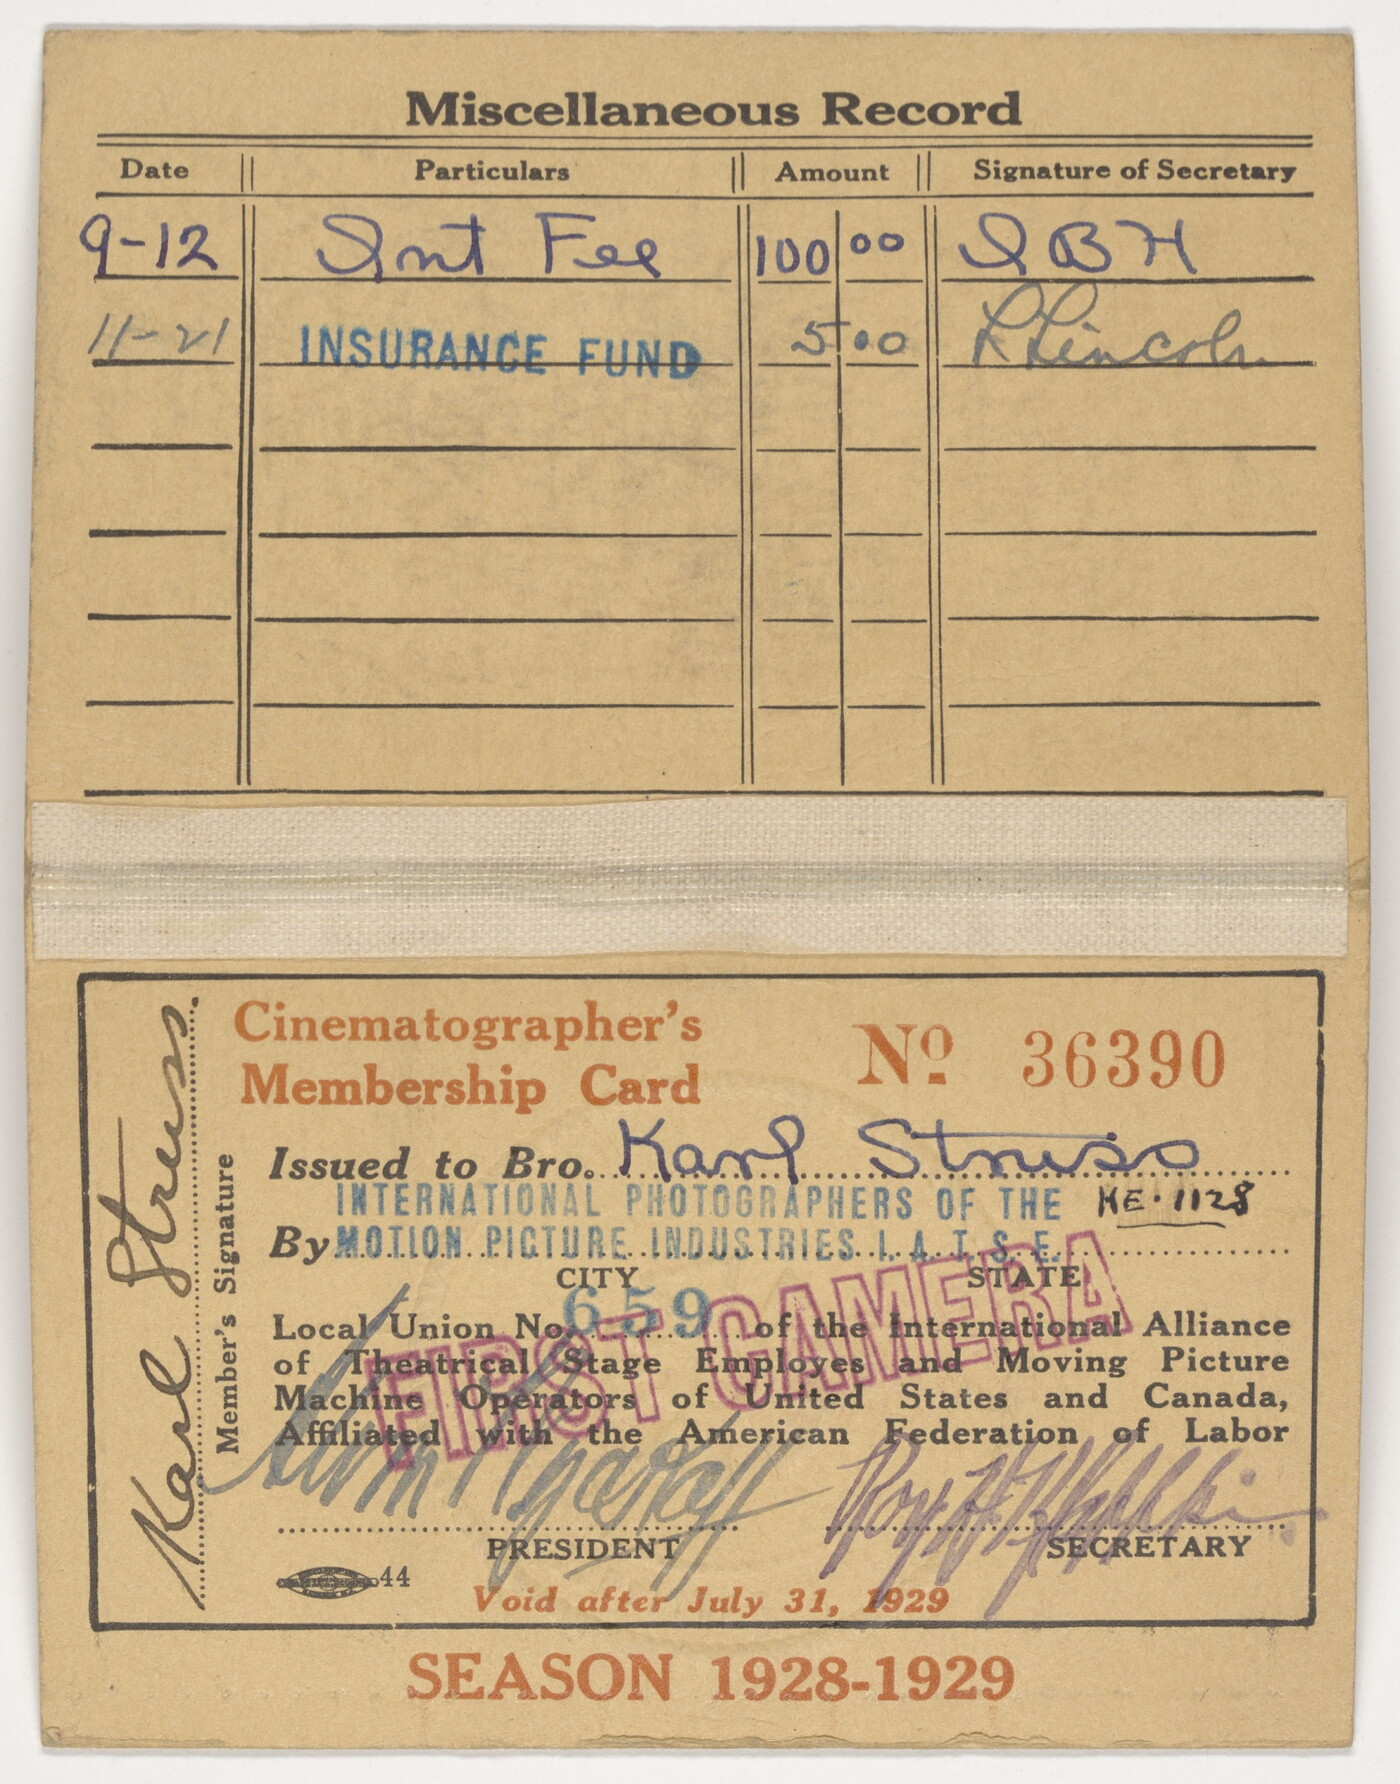 Miscellaneous Record
Date Particulars Amount Signature of Secretary
9-12 Int Fee 100 00 I B H
11-21 INSURANCE FUND 5 00 R Lincoln.
Cinematographer's
Membership Card
No 36390
Issued to Bro. Karl Struss
INTERNATIONAL PHOTOGRAPHERS OF THE HE-1128
By MOTION PICTURE INDUSTRIES I. A. T. S. E.
CITY STATE
FIRST CAMERA
Local Union No. 659 of the International Alliance
of Theatrical Stage Employes and Moving Picture
Machine Operators of United States and Canada,
Affiliated with the American Federation of Labor
PRESIDENT SECRETARY
44
Void after July 31, 1929
Karl Struss
Member's Signature
SEASON 1928-1929